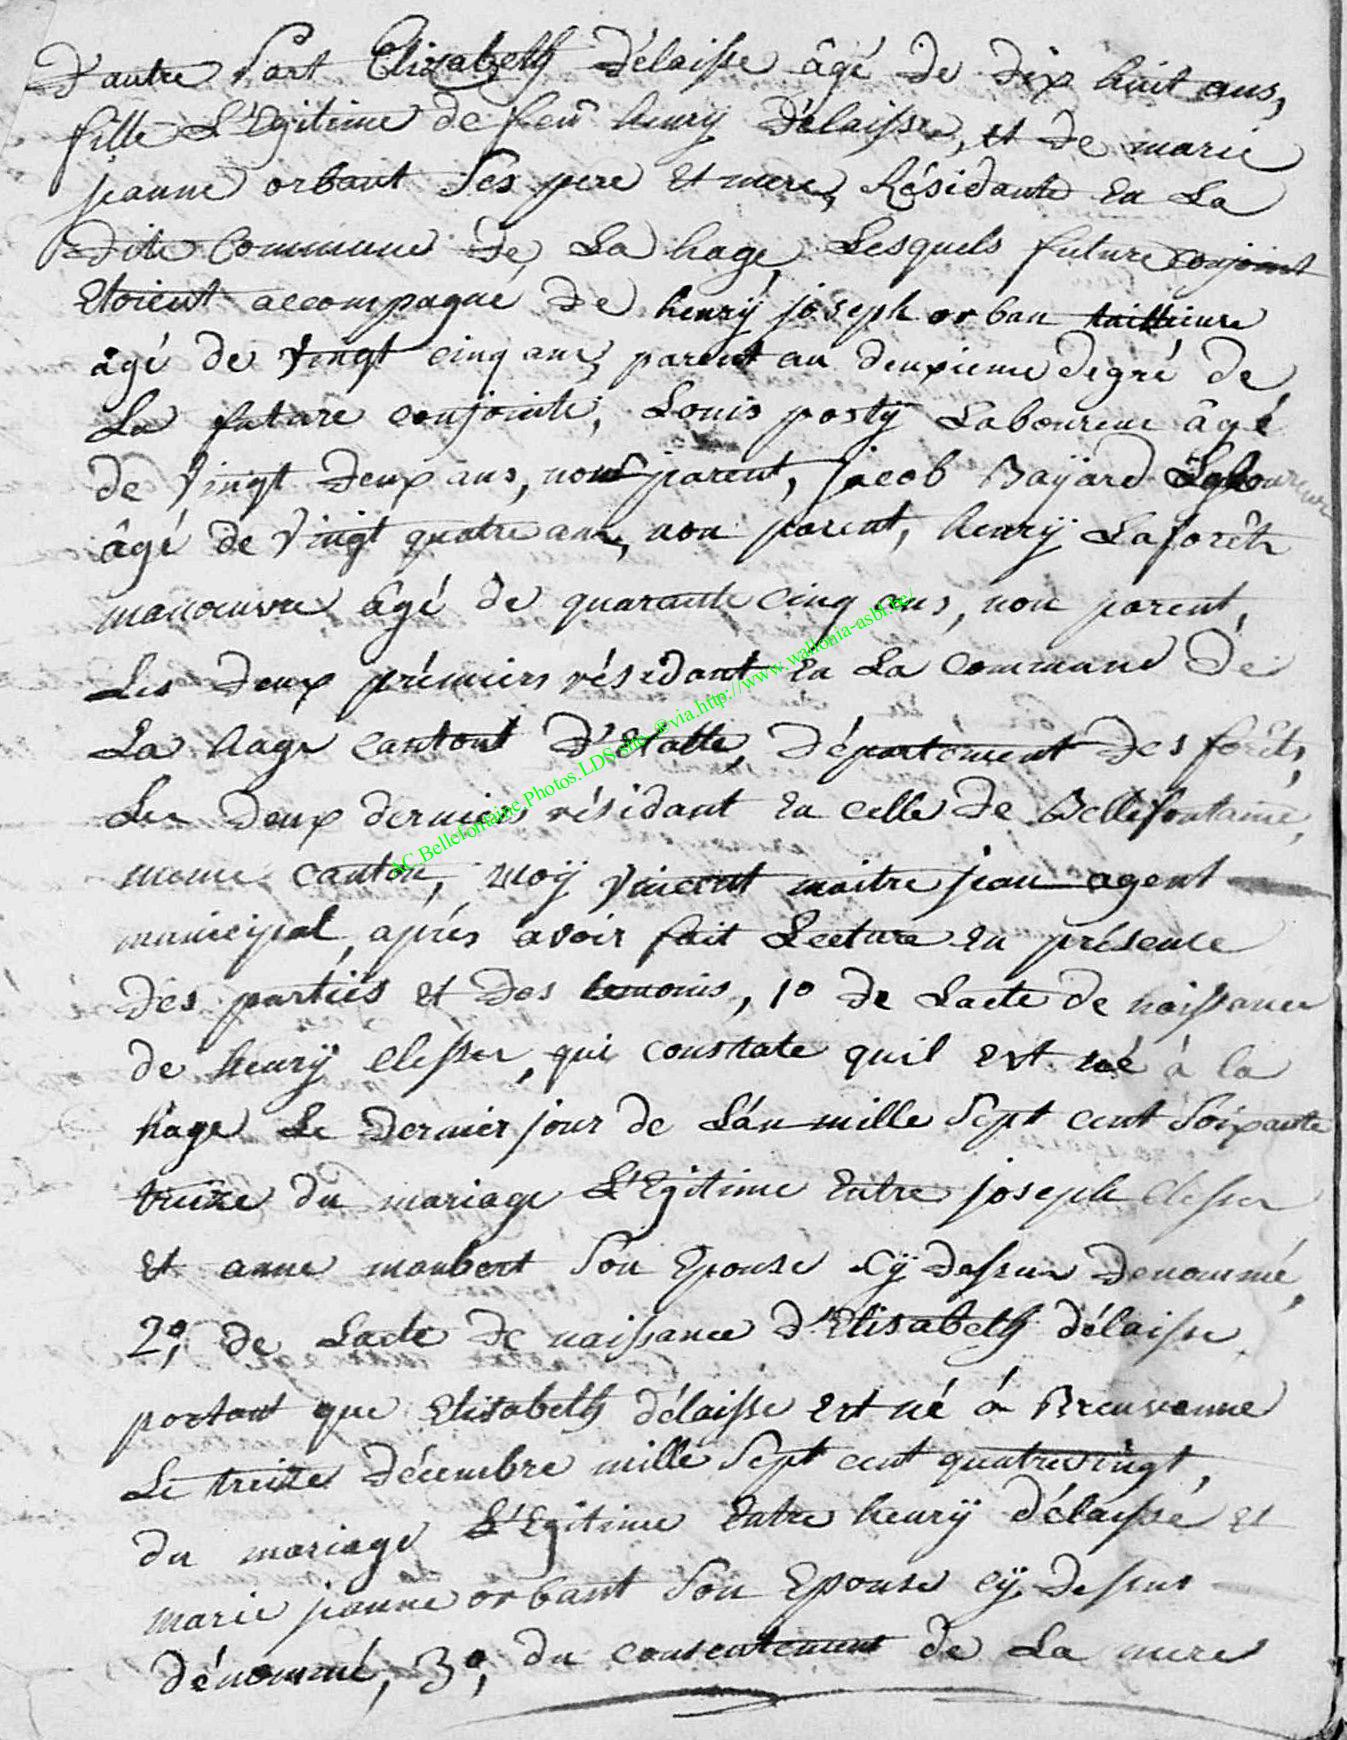 D'autre Part Elisabeth Délaisse âgé de dix huit ans,
fille L'Egitime de feu henry Délaisse, et de marie
jeanne orbant Ses pere et mere, Résidante en La
dite Commune de La hage, Lesquels future conjoint
Etoient accompagné de henrÿ joseph orban tailleure
âgé de vingt cinq ans, parent au deuxieme degré de
La future conjointe, Louis postÿ Laboureur âgé
de vingt deux ans, non parent, jacob Baÿard Laboureur
âgé de vingt quatre ans, non parent, henrÿ Laforêt
manoeuvre âgé de quarante cinq ans, non parent,
Les deux prémiers résidant en La commune De
La hage cantont D'Etalle, Département des forêts,
Les deux derniers résidant en celle de Bellefontaine,
meme canton, moÿ vincent maitrejean agent
municipal, aprés avoir fait Lecture en présence
des partiés et des temoins, 1º de Lacte de naissance
de henrÿ Clesser, qui constate quil est né à la
hage Le dernier jour de L'an mille Sept cent Soixante
treize du mariage L'Egitime Entre joseph Clesser
et anne maubert Son Epouse Cÿ dessus denommé,
2º, de Lacte de naissance d'Elisabeth délaisse
portant que Elisabeth délaisse est né á Breuvanne
Le treize décembre mille Sept cent quatrevingt,
du mariage L'Egitime Entre henrÿ délaissé et
marie jeanne orbant Son Epouse cÿ dessus
dénommé, 3º, du consentement de La mere
AC.Bellefontaine.Photos.LDS.site.©via.http://www.wallonia-asbl.be/